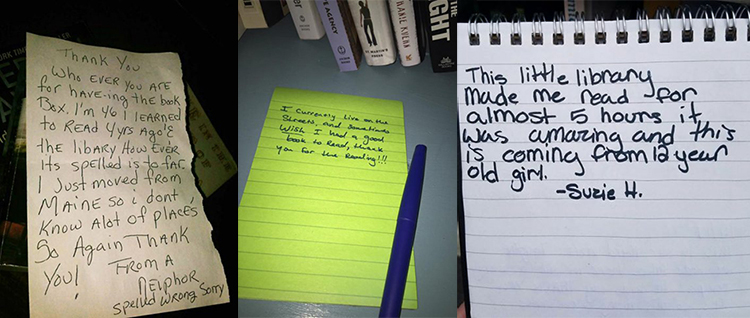 THANK YOU
WHO EVER YOU ARE
for have-ing the book
Box. I'm 46 I learned
to READ 4yrs ago &
the libary HOW EVER
Its spelled is to far
I JUST moved from
MAINE SO i dont
KNOW Alot of places,
So AGAIN THANK
YOU! FROM A
NEIPHOR
Spelled wrong Sorry
AGENCY
GHT
I Currently live on the
Streets, and sometimes
Wish I had a good
book to Read, thank
you for the Reading!!!
This little library
Made me read for
almost 5 hours it
was amazing and this
is coming from 12 year
old girl.
-Suzie H.